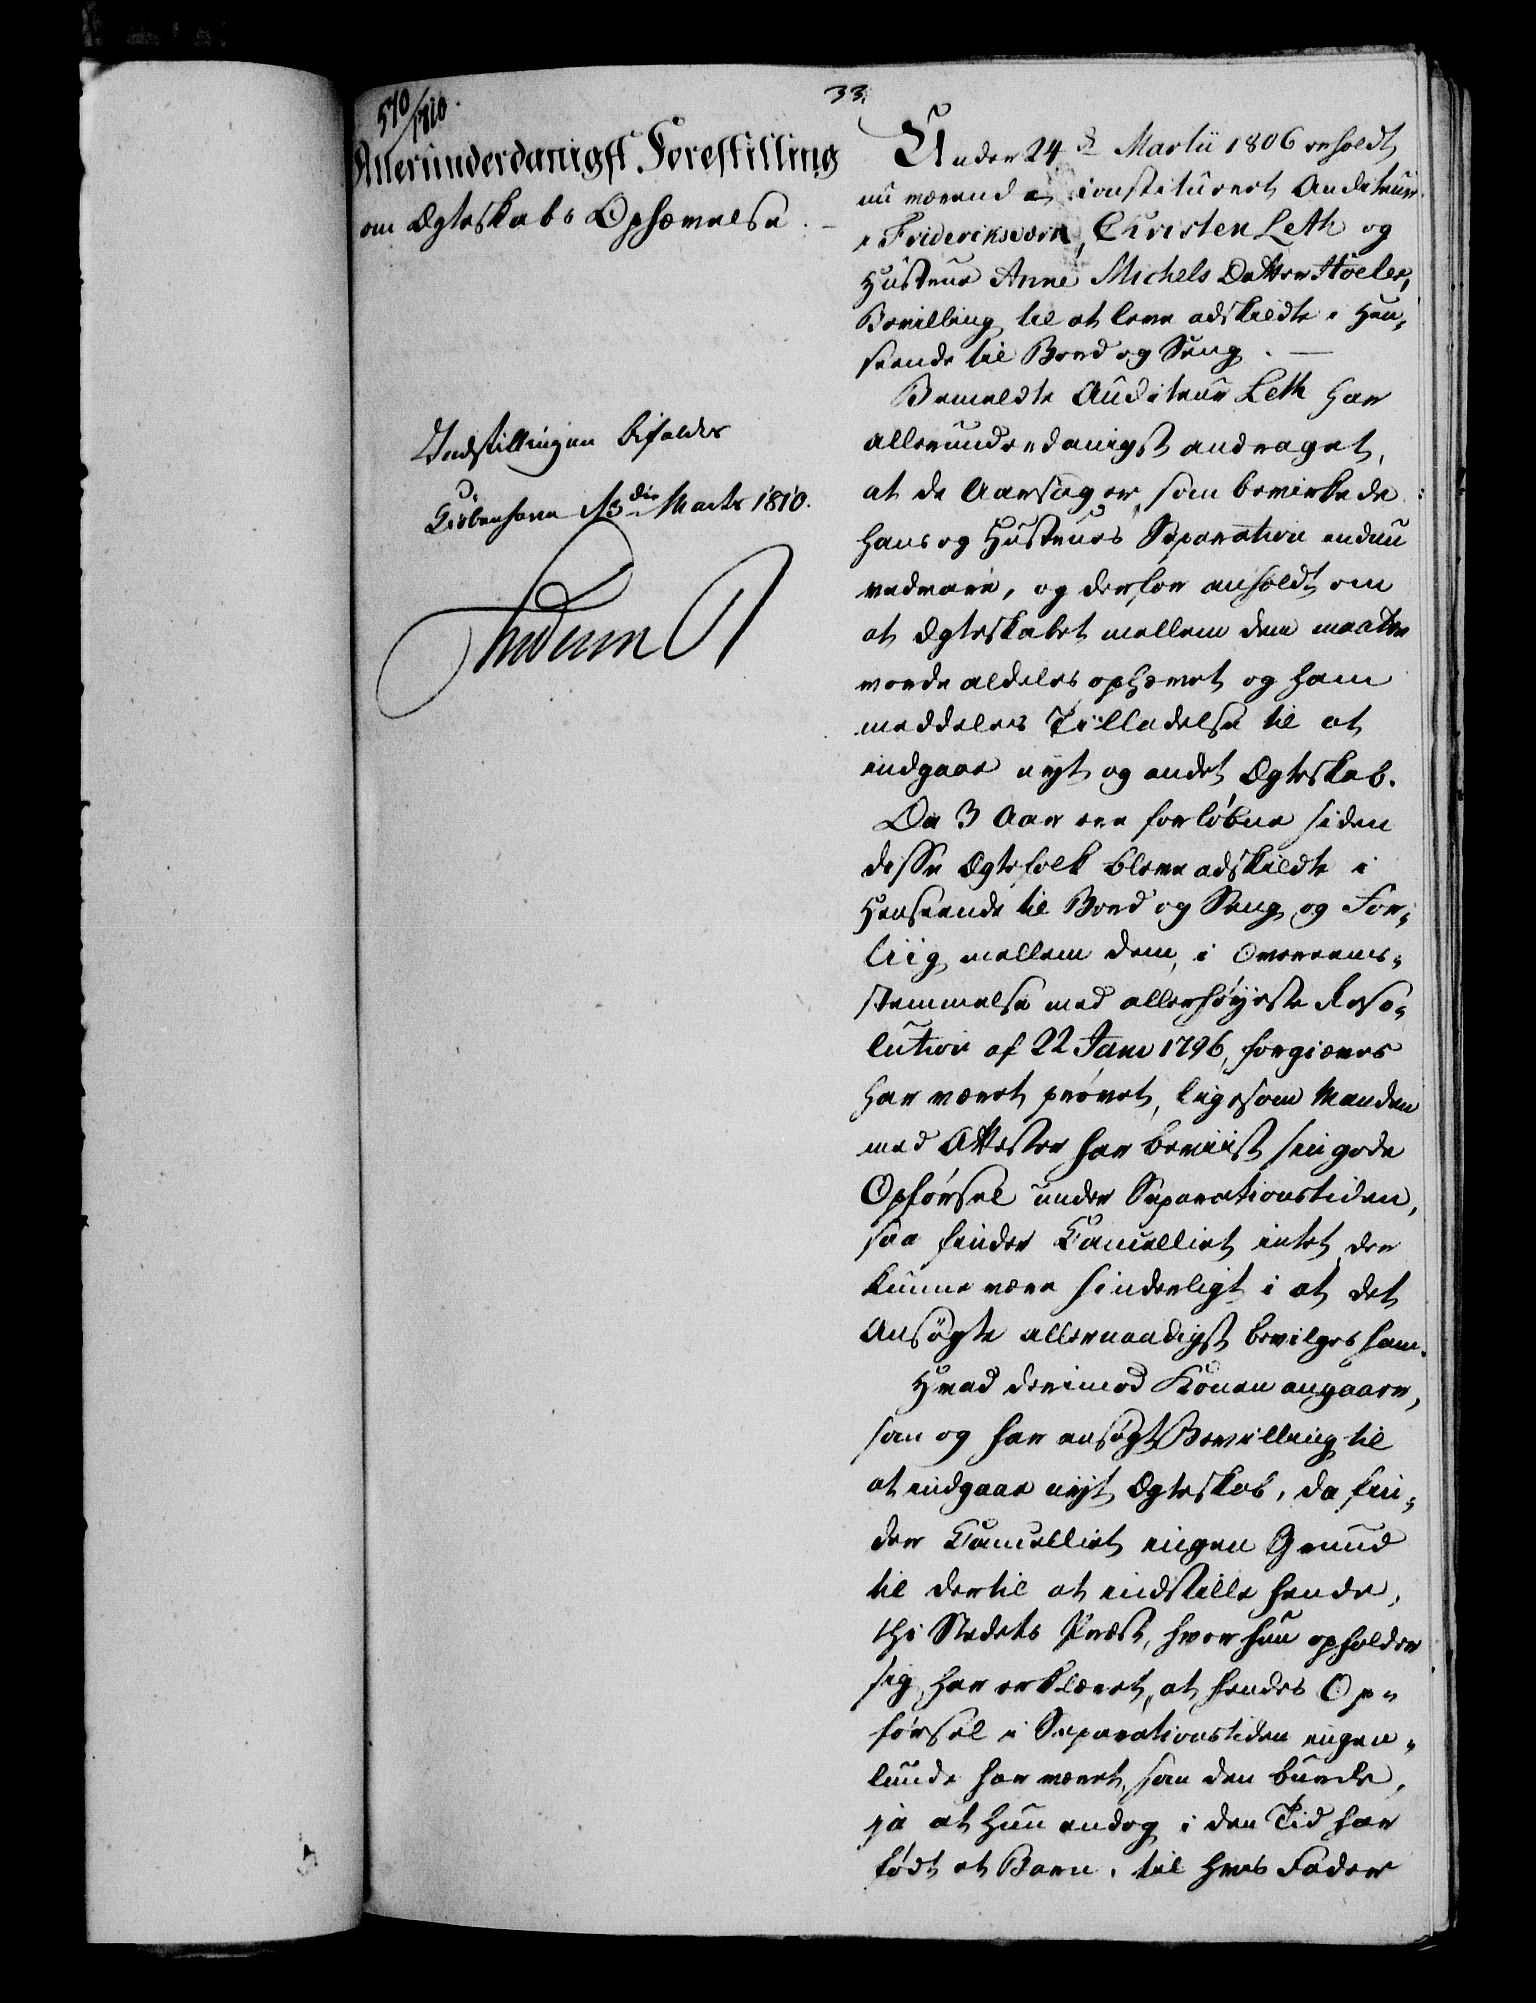 33.
570/1810.
Allerunderdanigst Forestilling
om Ægteskabs Ophævelse.
Indstillingen bifaldes
Kiøbenhavn 13die Marts 1810.
Frederik R
Under 24de Martii 1806 erholdt
nu værende constitueret Auditeur
i Frideriksværn, Christen Leth og
Hustrue Anne Michels Datter Høeler,
Bevilling til at leve adskildte i Hen-
seende til Bord og Seng. —
Bemeldte Auditeur Leth har
allerunderdanigst andraget,
at de Aarsager, som bevirkede
hans og Hustrues Separation endnu
vedvare, og derfor anholdt om
at Ægteskabet mellem dem maatte
vorde aldeles ophævet og ham
meddeles Tilladelse til at
indgaae nyt og andet Ægteskab.
Da 3 Aar ere forløbne siden
disse Ægtefolk bleve adskildte i
Henseende til Bord og Seng og For-
liig mellem dem, i Overeens-
stemmelse med allerhøyeste Reso-
lution af 22 Janv 1796, forgieves
har været prøvet, ligesom Manden
med Attester har beviist sin gode
Opførsel under Separationstiden,
saa finder Cancelliet intet der
kunne være hinderligt i at det
Ansøgte allernaadigst bevilges ham.
Hvad derimod Konen angaaer,
som og har ansøgt Bevilling til
at indgaae nyt Ægteskab, da fin-
der Cancelliet ingen Grund
til dertil at indstille hende,
thi Stedets Præst, hvor hun opholder
sig, har erklæret, at hendes Op-
førsel i Separationstiden ingen-
lunde har været, som den burde,
ja at hun endog i den Tid har
født et Barn, til hvis Fader